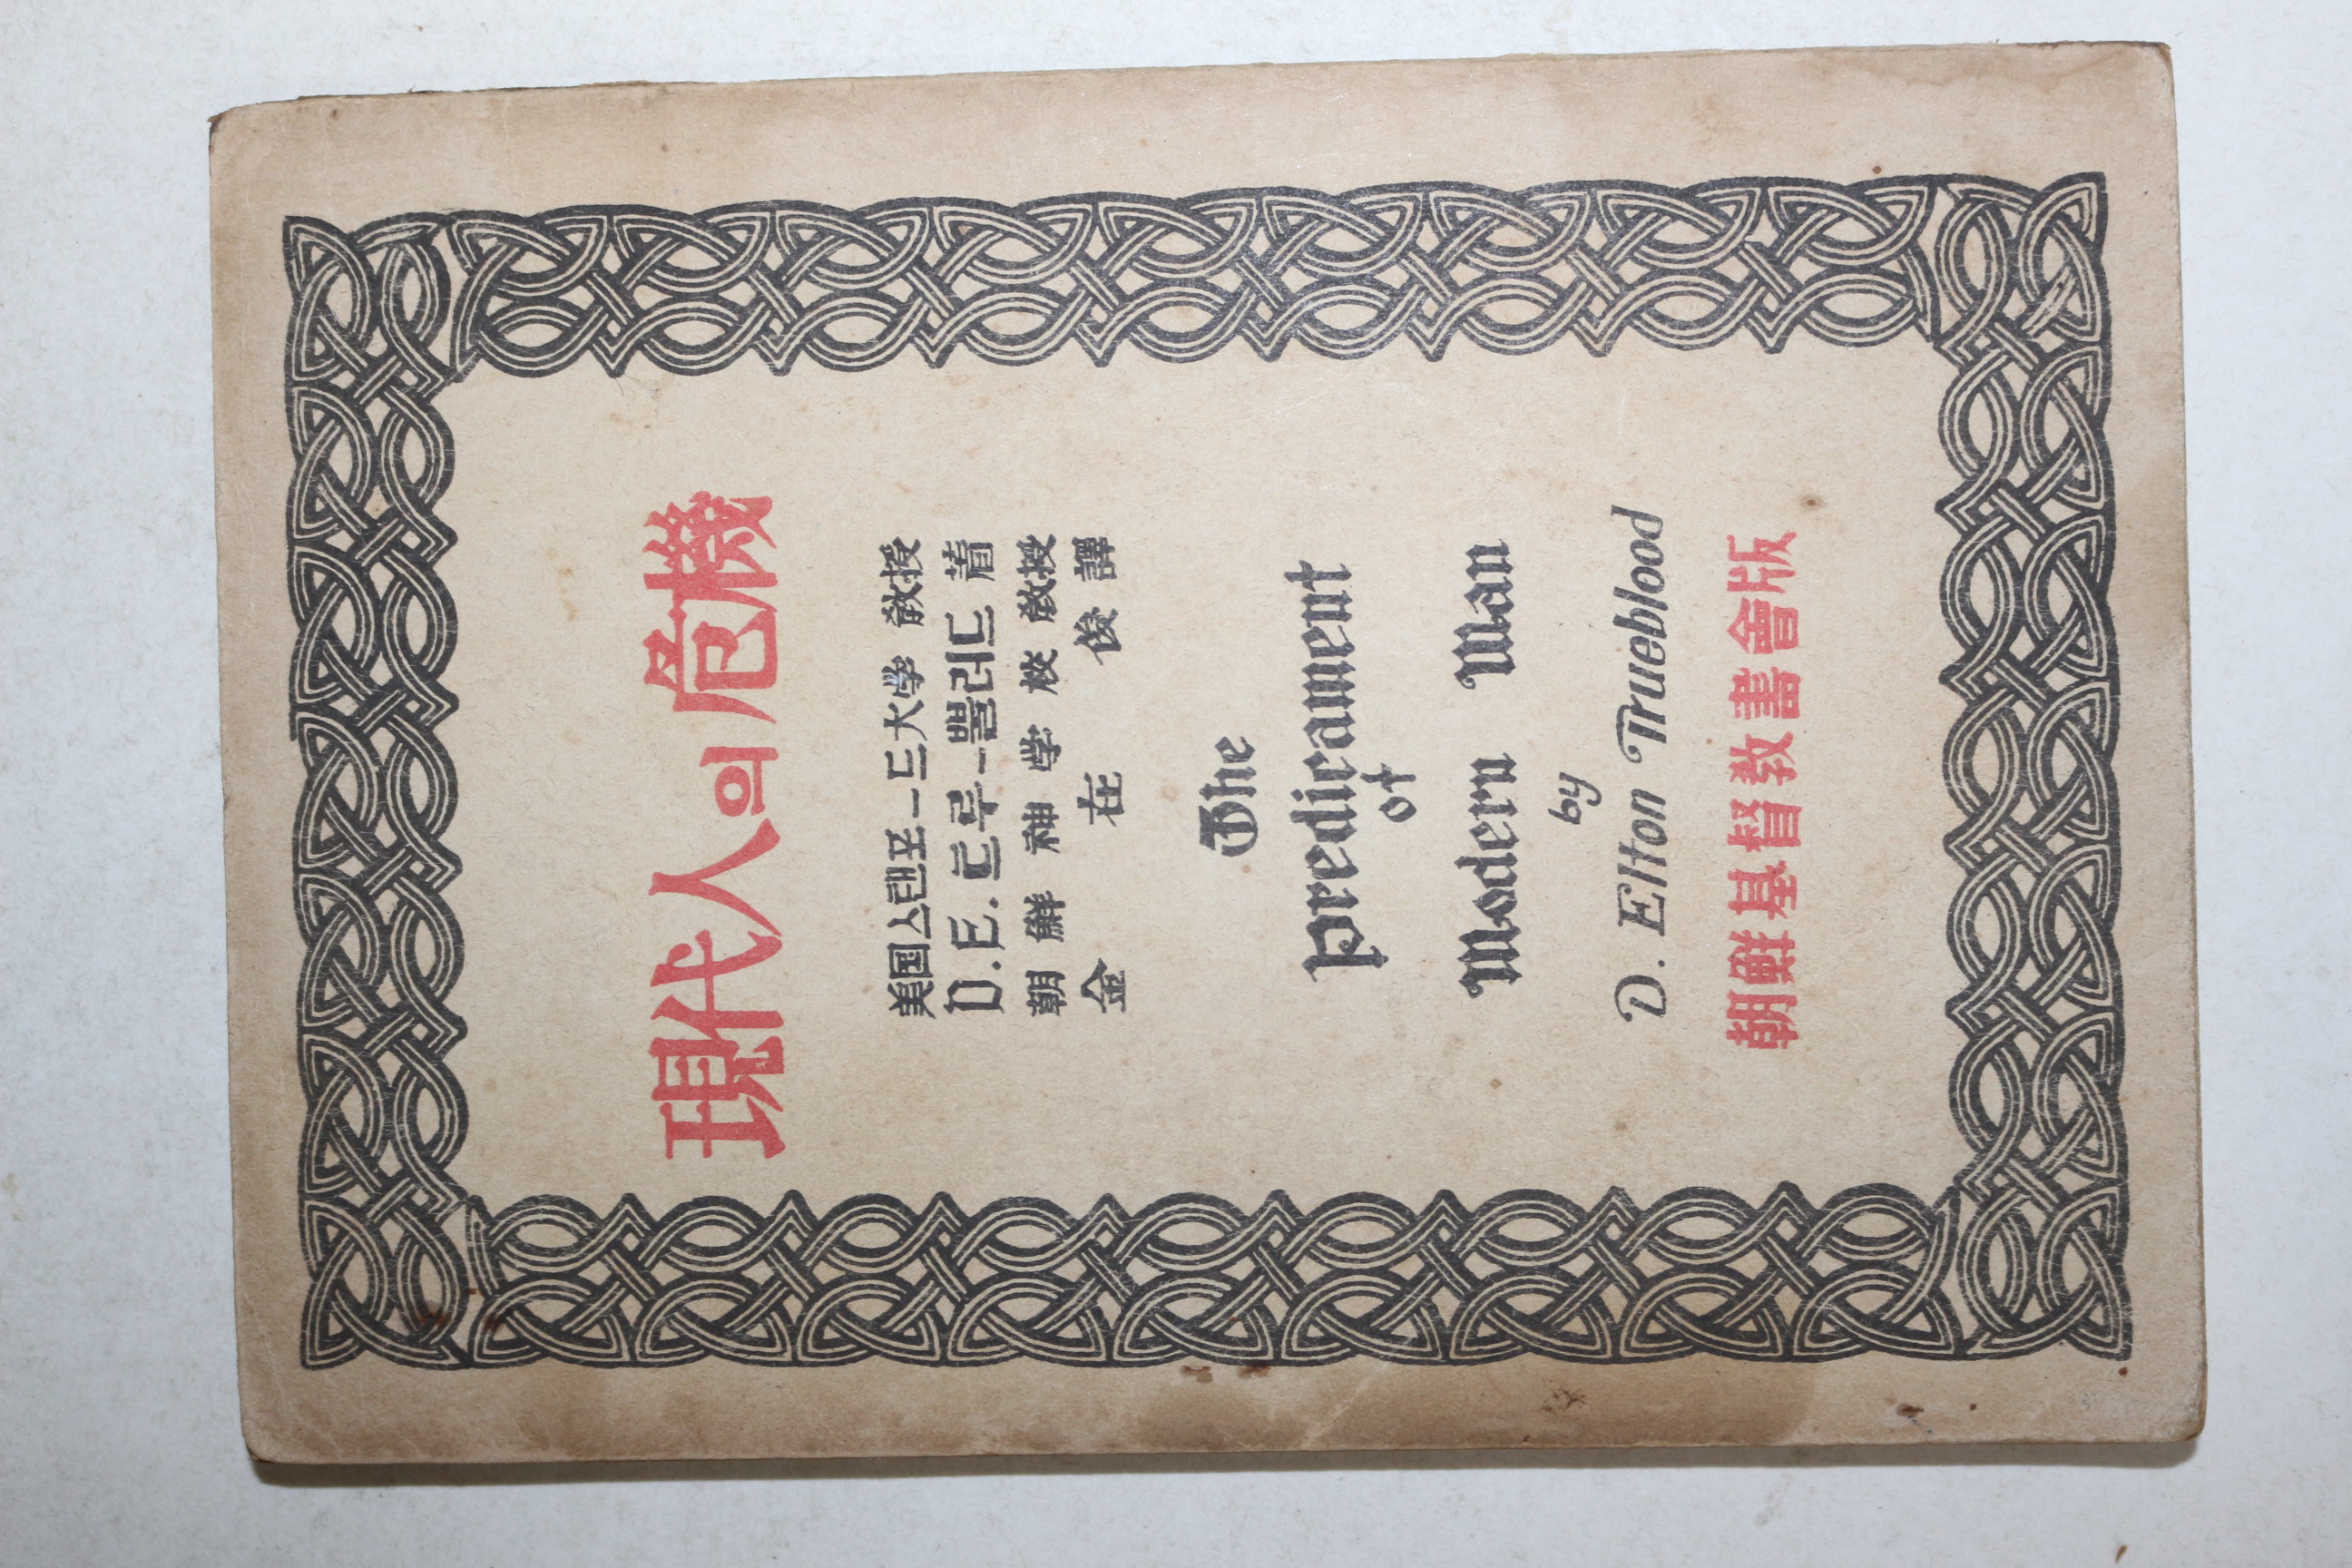 現代人의危機
美国스탠포ㅡ드大学 敎授
D.E.트루ㅡ뿔러드 着
朝鮮神学校敎授
金在俊譯
The
Predicament
of
Modern Man
by
D. Elton Trueblood
朝鮮基督敎書會版